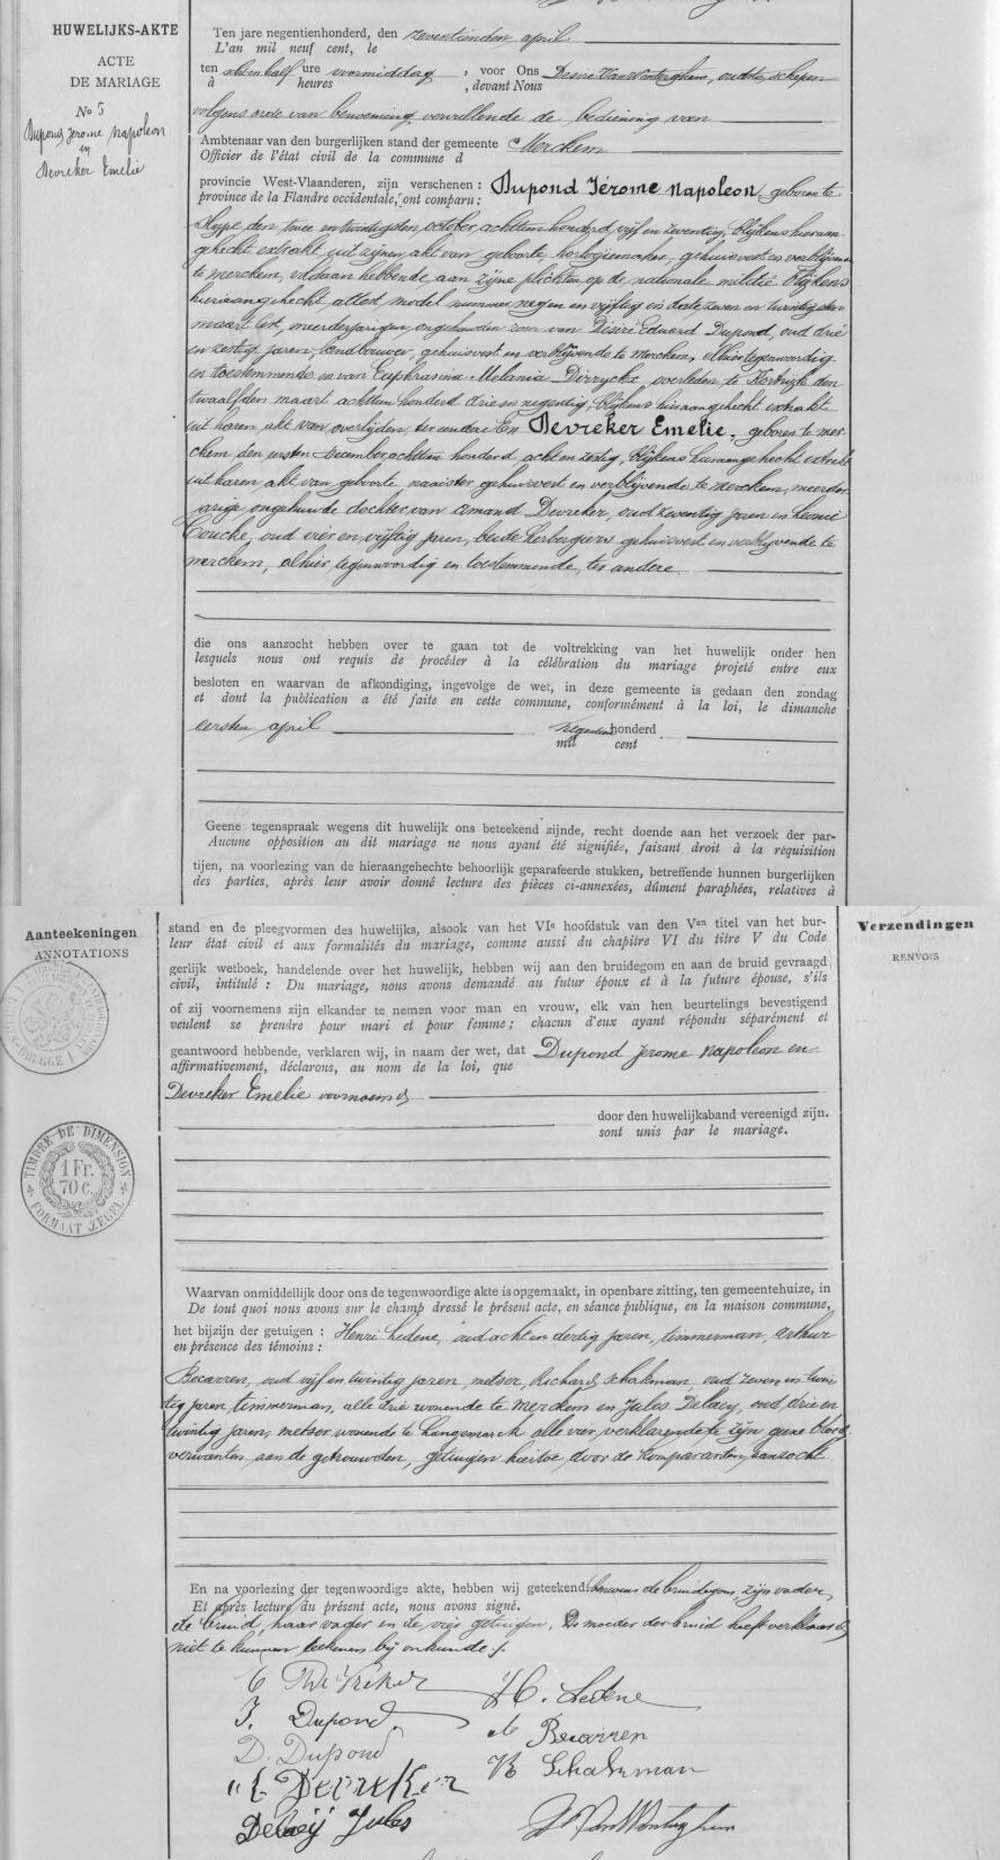 HUWELIJKS-AKTE
ACTE
DE MARIAGE
No 5
Dupond Jerome Napoleon
en
Devreker Emelie
Ten jare negentienhonderd, den zeventienden april
L'an mil neuf cent, le
ten achtenhalf ure voormiddag, voor Ons Desiré Van Wonterghem, oudste schepen
à heures , devant Nous
volgens orde van benoeming vervullende de bediening van
Ambtenaar van den burgerlijken stand der gemeente Merckem
Officier de l'état civil de la commune d
provincie West-Vlaanderen, zijn verschenen : Dupond Jérome Napoleon, geboren te
province de la Flandre occidentale, ont comparu :
den twee en twintigsten october achttien honderd vijf en zeventig, blijkens hieraan-
gehecht extrakt uit zijnen akt van geboorte, horlogiemaker, gehuisvest en verblijvende
te Merckem, voldaan hebbende aan zijne plichten op de nationale militie blijkens
hieraangehecht attest model nummer negen en vijftig in date zeven en twintigsten
maart lest, meerderjarigen ongehuwden zoon van Désiré Eduard Dupond, oud drie
en zestig jaren, landbouwer, gehuisvest en verblijvende te Merckem, alhier tegenwoordig
en toestemmende en van Euphrasina Melania Dirryckx, overleden te Kortrijk den
twaalfden maart achttien honderd drie en negentig, blijkens hieraangehecht extrakt
uit haren akt van overlijden, ter eendre En Devreker Emelie, geboren te Mer-
ckem, den eersten December achttien honderd acht en zestig, blijkens hieraangehecht extrakt
uit haren akt van geboorte naaister gehuisvest en verblijvende te Merckem, meerder-
jarige ongehuwde dochter van Amand Devreker, oud zeventig jaren en Leonie
Couche, oud vier en vijftig jaren, beide herbergiers gehuisvest en verblijvende te
Merckem, alhier tegenwoordig en toestemmende, ter andere
die ons aanzocht hebben over te gaan tot de voltrekking van het huwelijk onder hen
lesquels nous ont requis de procéder à la célébration du mariage projeté entre eux
besloten en waarvan de afkondiging, ingevolge de wet, in deze gemeente is gedaan den zondag
et dont la publication a été faite en cette commune, conformément à la loi, le dimanche
eersten april negentienhonderd
mil cent
Geene tegenspraak wegens dit huwelijk ons beteekend zijnde, recht doende aan het verzoek der par-
Aucune opposition au dit mariage ne nous ayant été signifiée, faisant droit à la réquisition
tijen, na voorlezing van de hieraangehechte behoorlijk geparafeerde stukken, betreffende hunnen burgerlijken
des parties, après leur avoir donné lecture des pièces ci-annexées, dûment paraphées, relatives à
Aanteekeningen
ANNOTATIONS
Verzendingen
RENVOIS
stand en de pleegvormen des huwelijks, alsook van het VIe hoofdstuk van den Ven titel van het bur-
leur état civil et aux formalités du mariage, comme aussi du chapitre VI du titre V du Code
gerlijk wetboek, handelende over het huwelijk, hebben wij aan den bruidegom en aan de bruid gevraagd
civil, intitulé : Du mariage, nous avons demandé au futur époux et à la future épouse, s'ils
of zij voornemens zijn elkander te nemen voor man en vrouw, elk van hen beurtelings bevestigend
veulent se prendre pour mari et pour femme ; chacun d'eux ayant répondu séparément et
geantwoord hebbende, verklaren wij, in naam der wet, dat Dupond Jerome Napoleon en
affirmativement, déclarons, au nom de la loi, que
Devreker Emelie voornoemd
door den huwelijksband vereenigd zijn.
sont unis par le mariage.
TIMBRE DE DIMENSION
1 Fr.
70 c.
FORMAAT ZEGEL
Waarvan onmiddelijk door ons de tegenwoordige akte is opgemaakt, in openbare zitting, ten gemeentehuize, in
De tout quoi nous avons sur le champ dressé le présent acte, en séance publique, en la maison commune,
het bijzijn der getuigen : Henri Ledene, oud acht en dertig jaren, timmerman, Arthur
en présence des témoins :
Becarren, oud vijf en twintig jaren, metser, Richard Schakman, oud zeven en twin-
tig jaren, timmerman, alle drie wonende te Merckem en Jules Delaey, oud drie en
twintig jaren, metser wonende te Langemarck alle vier verklarende te zijn geene bloed-
verwanten aan de getrouwden, getuigen hiertoe door de komparanten aanzocht
En na voorlezing der tegenwoordige akte, hebben wij geteekend benevens de bruidegom, zijn vader,
Et après lecture du présent acte, nous avons signé.
de bruid, haar vader en de vier getuigen. De moeder der bruid heeft verklaard
niet te kunnen teekenen bij onkunde.
H. Ledene
J. Dupond
Becarren
D. Dupond
R Schakman
Devreker
Delaeij Jules